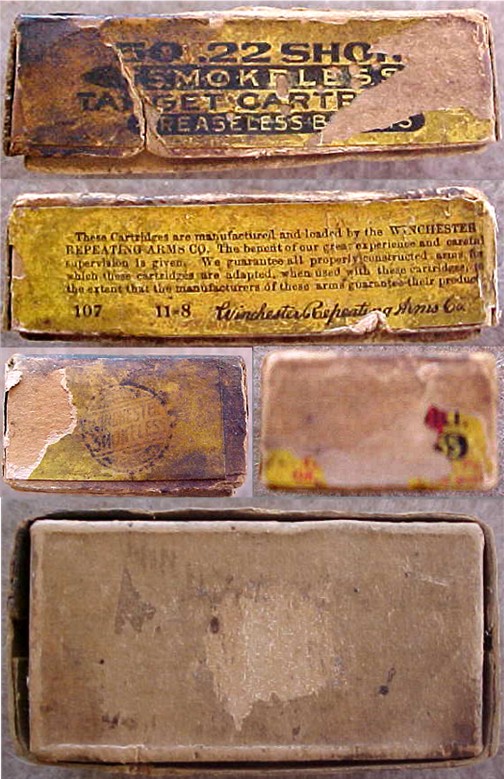 50 .22 SHOR
SMOKELESS
TARGET CARTR
GREASELESS B
These Cartridges are manufactured and loaded by the WINCHESTER
REPEATING ARMS CO. The benefit of our great experience and careful
supervision is given. We guarantee all properly constructed arms for
which these cartridges are adapted, when used with these cartridges, to
the extent that the manufacturers of these arms guarantee their product
107 11-8 Winchester Repeating Arms Co.
WINCHESTER
SMOKELESS